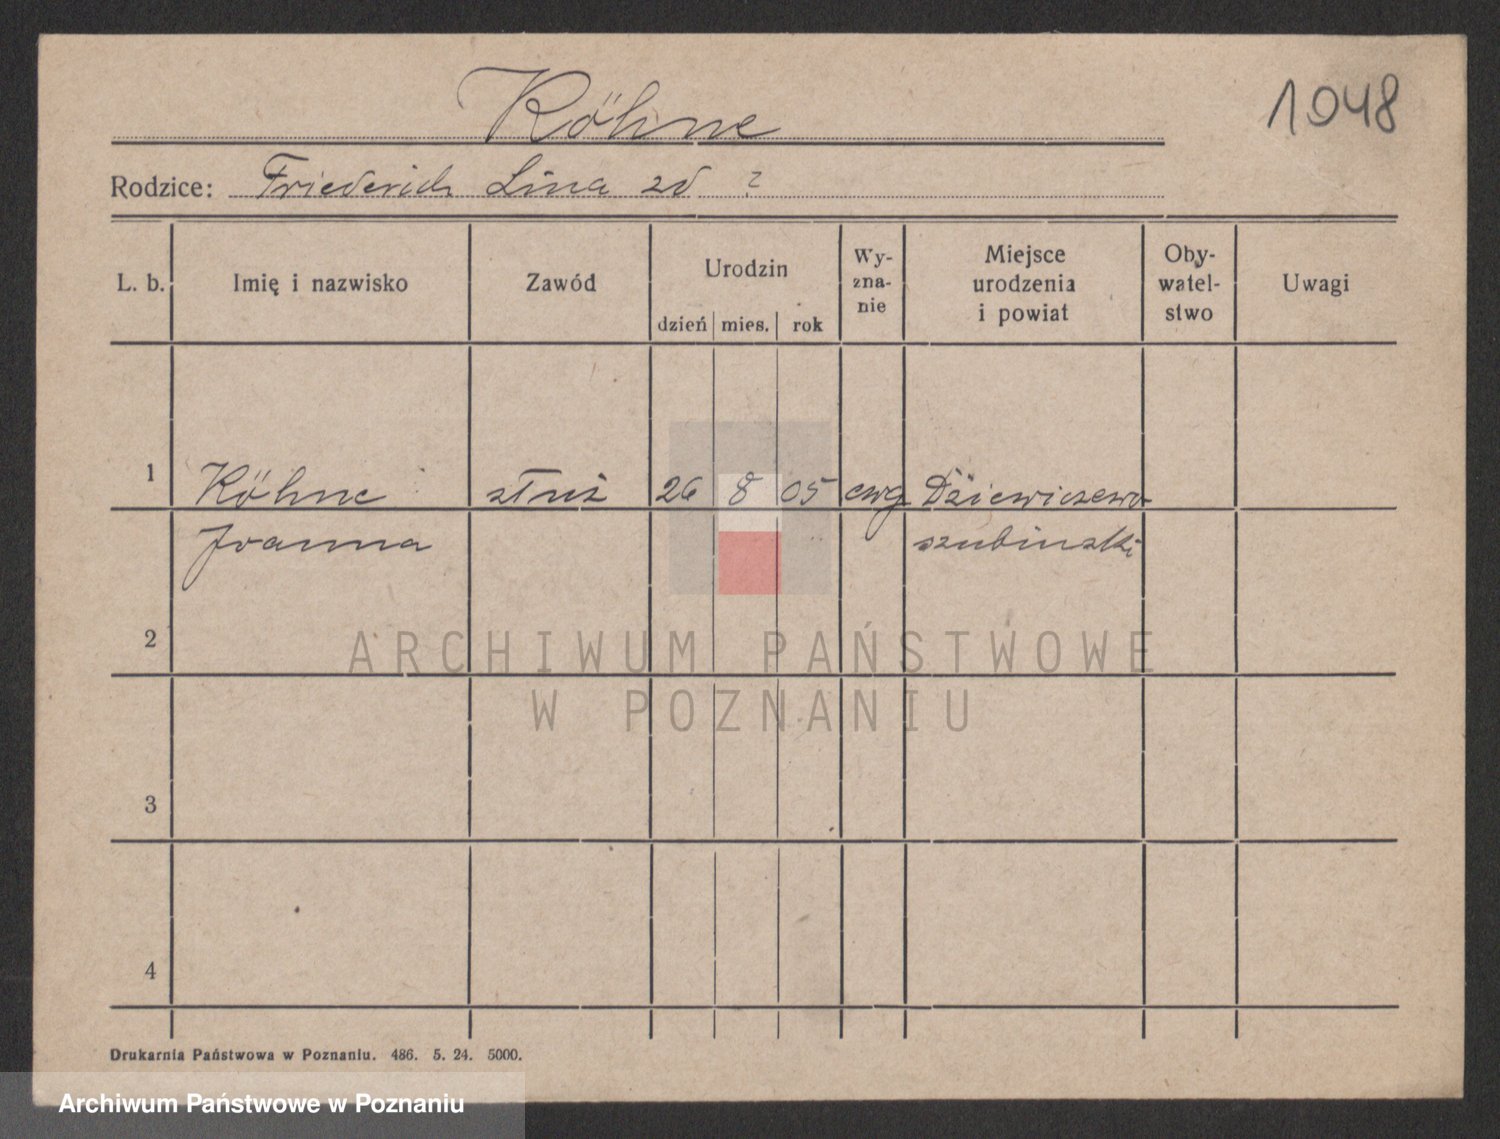 Köhne
1048
Rodzice: Friederich Lina zd ?
L. b. Imię i nazwisko Zawód Urodzin dzień mies. rok Wy-zna-nie Miejsce urodzenia i powiat Oby-watel-stwo Uwagi
1 Köhne służ 26 8 05 ewg Dziewiczewo
Joanna szubinski
2
ARCHIWUM PAŃSTWOWE
W POZNANIU
3
4
Drukarnia Państwowa w Poznaniu. 486. 5. 24. 5000.
Archiwum Państwowe w Poznaniu